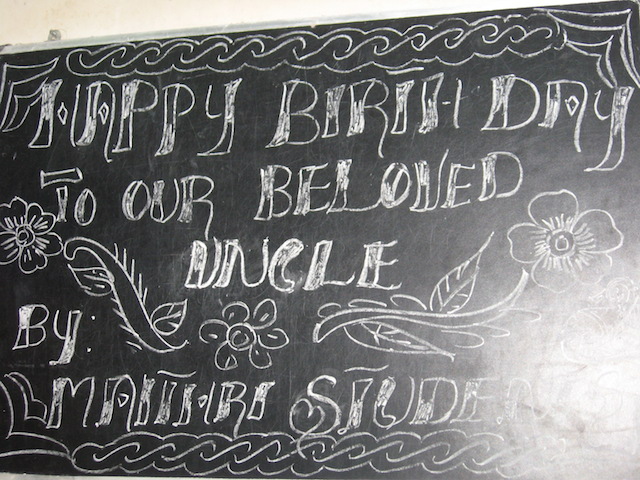 HAPPY BIRTH DAY
TO OUR BELOVED
UNCLE
BY:
MAITHRI STUDENTS